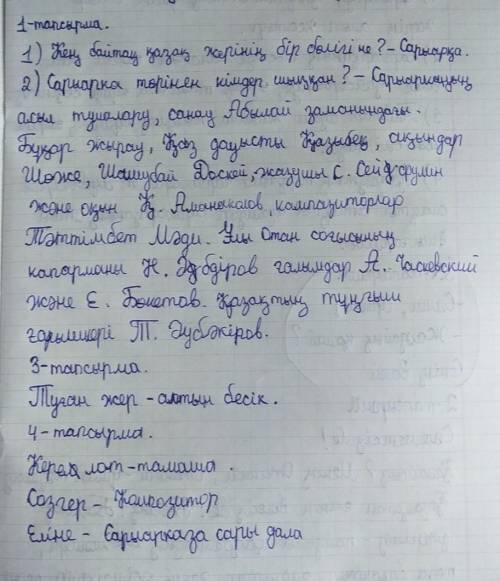 1-тапсырма.
1) Кең байтақ қазақ жерінің бір бөлігі не? - Сарыарқа.
2) Сарыарка төрінен кімдер шыққан? - Сарыарқаның
асыл тұлалару, санау Абылай заманындағы.
Бұқар жырау, Қаз дауысты Қазыбек, ақындар
Шөже, Шашубай Доскей, жазушы С. Сейдфулин
және оқын Қ. Аманжалов, кампазиторлар
Тәттімбет Мәди. Ұлы Отан соғысының
капарманы Н. Әдбдіров ғалымдар А. Часкевский
және Е. Бөкетов. Қазақтың тұңғыш
ғарышкері Т. Әубәкіров.
3-тапсырма.
Туған жер - алтын бесік.
4-тапсырма.
Керек лот-тамаша.
Созгер - Композитор
Еліне - Сарыарказа сары дала